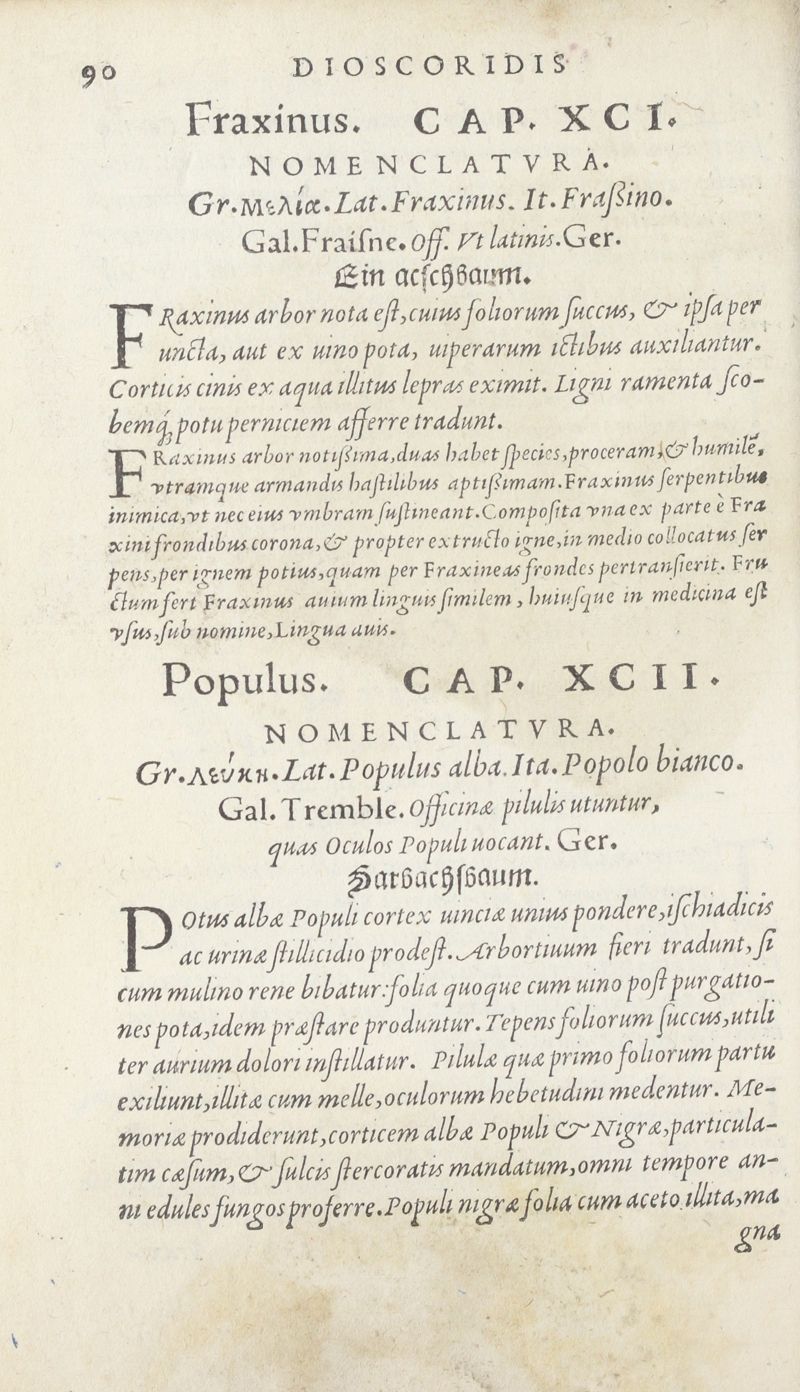 90 DIOSCORIDIS
Fraxinus. CAP. XCI.
NOMENCLATVRA.
Gr. Μελία. Lat. Fraxinus. It. Fraßino.
Gal. Fraiſne. Off. Vt latinis. Ger.
Ein acſchbaum.
FRaxinus arbor nota eſt, cuius foliorum ſuccus, & ipſa per
uncta, aut ex uino pota, uiperarum ictibus auxiliantur.
Corticis cinis ex aqua illitus lepras eximit. Ligni ramenta ſco-
bemq́; potu perniciem afferre tradunt.
FRaxinus arbor notißima, duas habet ſpecies, proceram, & humilẽ,
vtramque armandis haſtilibus aptißimam. Fraxinus ſerpentibus
inimica, vt nec eius vmbram ſuſtineant. Compoſita vna ex parte è Fra
xini frondibus corona, & propter extructo igne, in medio collocatus ſer
pens, per ignem potius, quam per Fraxineas frondes pertranſierit. Fru
ctum fert Fraxinus auium linguis ſimilem, huiuſque in medicina eſt
vſus, ſub nomine, Lingua auis.
Populus. CAP. XCII.
NOMENCLATVRA.
Gr. Λεύκη. Lat. Populus alba. Ita. Popolo bianco.
Gal. Tremble. Officinæ pilulis utuntur,
quas Oculos Populi uocant. Ger.
Sarbachſbaum.
POtus albæ Populi cortex unciæ unius pondere, iſchiadicis
ac urinæ ſtillicidio prodeſt. Arbortiuum fieri tradunt, ſi
cum mulino rene bibatur: folia quoque cum uino poſt purgatio-
nes pota, idem præſtare produntur. Tepens foliorum ſuccus, utili
ter aurium dolori inſtillatur. Pilulæ quæ primo foliorum partu
exiliunt, illitæ cum melle, oculorum hebetudini medentur. Me-
moriæ prodiderunt, corticem albæ Populi & Nigræ, particula-
tim cæſum, & ſulcis ſtercoratis mandatum, omni tempore an-
ni edules fungos proferre. Populi nigræ folia cum aceto illita, ma
gna